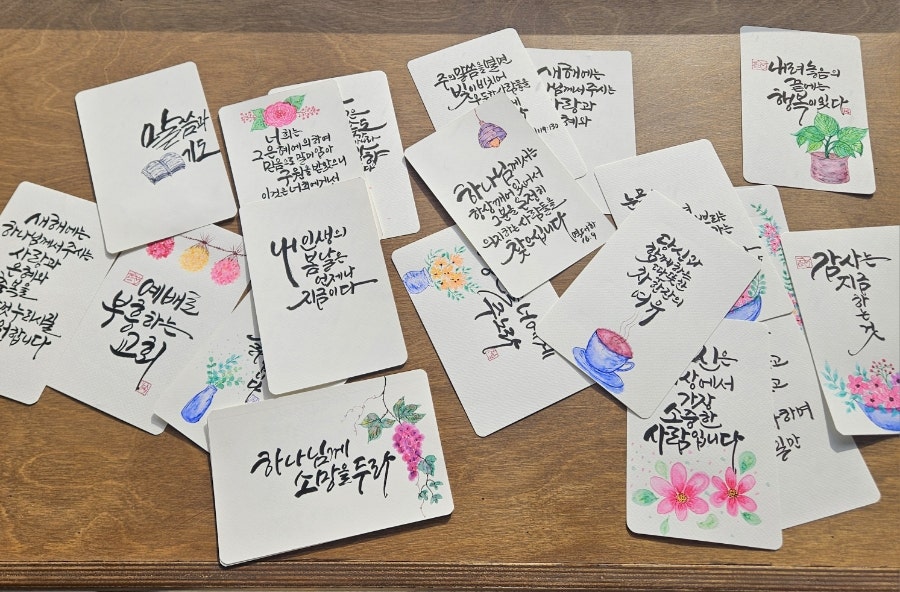 말씀과
기도
너희는
그 은혜에 의하여
믿음으로 말미암아
구원을 받았으니
이것은 너희에게서
주의 말씀을 열면
빛이 비치어
우둔한 사람들을
새해에는
사랑과
119:130
내려놓음의
끝에는
행복이 있다
하나님께서는
항상 깨어 있어서
그 분을 온전히
의지하는 사람들을
찾으십니다
역대하
16:9
새해에는
하나님께서 주시는
사랑과
은혜와
예배를
부흥하는
교회
내 인생의
봄날은
언제나
지금이다
당신과
함께하는
따뜻한
차 한잔의
여유
감사는
지금
하는 것
하나님께
소망을 두라
상에서
가장
소중한
사람입니다